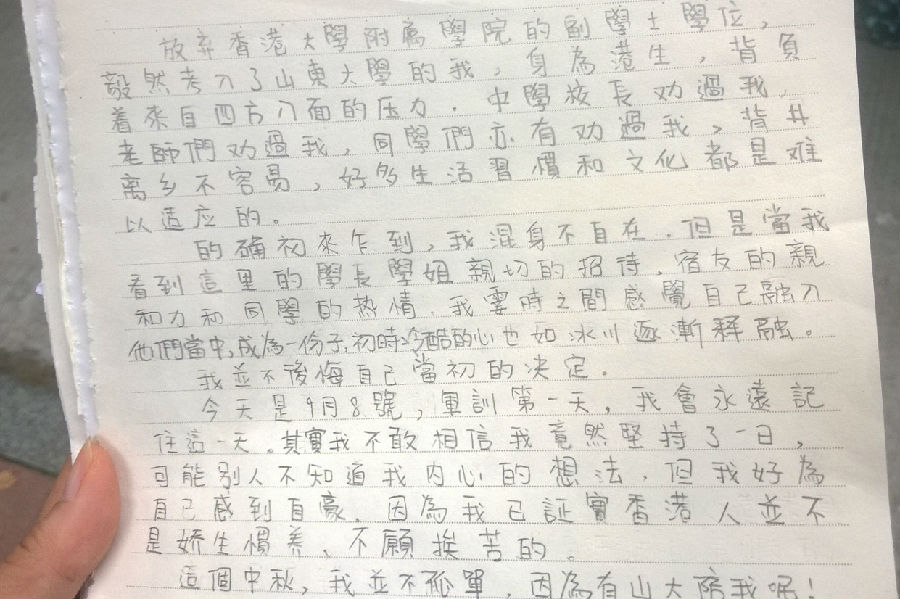 放弃香港大學附屬學院的副學士學位，
毅然考入了山東大學的我，身為港生，背負
着來自四方八面的压力．中學校長劝過我，
老師們劝過我，同學們亦有劝過我，背井
离乡不容易，好多生活習慣和文化都是难
以适应的。
的确初來乍到，我混身不自在．但是當我
看到這里的學長學姐親切的招待，宿友的親
和力和同學的热情，我霎時之間感覺自己融入
他們當中，成為一份子，初時冷酷的心也如冰川逐漸释融。
我並不後悔自己當初的决定．
今天是9月8號，軍訓第一天，我會永遠記
住這一天。其實我不敢相信我竟然堅持了一日，
可能别人不知道我内心的想法，但我好為
自己感到自豪，因為我已証實香港人並不
是娇生慣养、不願挨苦的。
這個中秋，我並不孤單，因為有山大陪我呢！